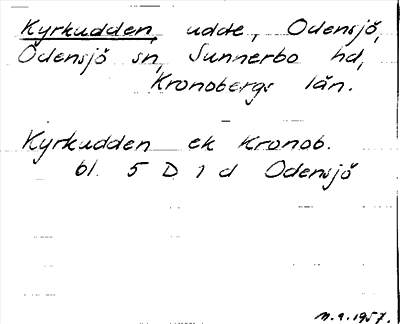 Kyrkudden, udde, Odensjö,
Odensjö sn, Sunnerbo hd,
Kronobergs län.
Kyrkudden ek Kronob.
bl. 5 D 1 d Odensjö
11.9.1957.